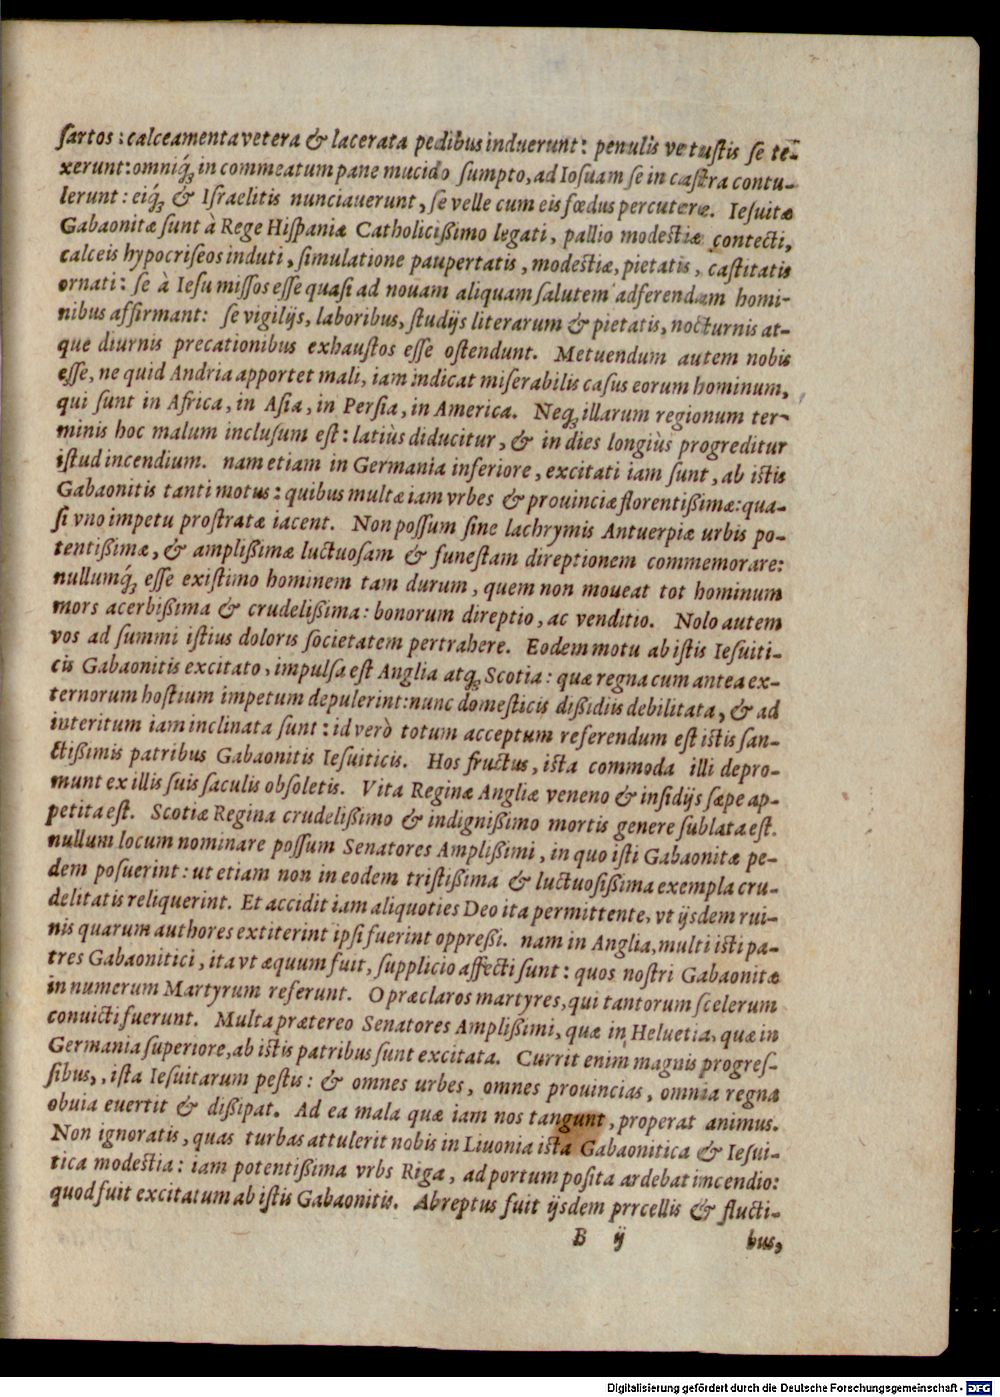 ſartos: calceamenta vetera & lacerata pedibus induerunt: penulis vetuſtis ſe te-
xerunt: omniq́ꝫ in commeatum pane mucido ſumpto, ad Ioſuam ſe in caſtra contu-
lerunt: eiq́ꝫ & Iſraelitis nunciauerunt, ſe velle cum eis fœdus percutere. Ieſuitæ
Gabaonitæ ſunt à Rege Hiſpaniæ Catholicißimo legati, pallio modeſtiæ contecti,
calceis hypocriſeos induti, ſimulatione paupertatis, modeſtiæ, pietatis, caſtitatis
ornati: ſe à Ieſu miſſos eſſe quaſi ad nouam aliquam ſalutem adferendam homi-
nibus affirmant: ſe vigilijs, laboribus, ſtudijs literarum & pietatis, nocturnis at-
que diurnis precationibus exhauſtos eſſe oſtendunt. Metuendum autem nobis
eſſe, ne quid Andria apportet mali, iam indicat miſerabilis caſus eorum hominum,
qui ſunt in Africa, in Aſia, in Perſia, in America. Neqꝫ illarum regionum ter-
minis hoc malum incluſum eſt: latiùs diducitur, & in dies longiùs progreditur
iſtud incendium. nam etiam in Germania inferiore, excitati iam ſunt, ab iſtis
Gabaonitis tanti motus: quibus multæ iam vrbes & prouinciæ florentißimæ: qua-
ſi vno impetu proſtratæ iacent. Non poſſum ſine lachrymis Antuerpiæ urbis po-
tentißimæ, & amplißimæ luctuoſam & funeſtam direptionem commemorare:
nullumq́ꝫ eſſe exiſtimo hominem tam durum, quem non moueat tot hominum
mors acerbißima & crudelißima: bonorum direptio, ac venditio. Nolo autem
vos ad ſummi iſtius doloris ſocietatem pertrahere. Eodem motu ab iſtis Ieſuiti-
cis Gabaonitis excitato, impulſa eſt Anglia atqꝫ Scotia: quæ regna cum antea ex-
ternorum hoſtium impetum depulerint: nunc domeſticis dißidiis debilitata, & ad
interitum iam inclinata ſunt: id verò totum acceptum referendum eſt iſtis ſan-
ctißimis patribus Gabaonitis Ieſuiticis. Hos fructus, iſta commoda illi depro-
munt ex illis ſuis ſaculis obſoletis. Vita Reginæ Angliæ veneno & inſidijs ſæpe ap-
petita eſt. Scotiæ Regina crudelißimo & indignißimo mortis genere ſublata eſt.
nullum locum nominare poſſum Senatores Amplißimi, in quo iſti Gabaonitæ pe-
dem poſuerint: ut etiam non in eodem triſtißima & luctuoſißima exempla cru-
delitatis reliquerint. Et accidit iam aliquoties Deo ita permittente, vt ijsdem rui-
nis quarum authores extiterint ipſi fuerint oppreßi. nam in Anglia, multi iſti pa-
tres Gabaonitici, ita vt æquum fuit, ſupplicio affecti ſunt: quos noſtri Gabaonitæ
in numerum Martyrum referunt. O præclaros martyres, qui tantorum ſcelerum
conuicti fuerunt. Multa prætereo Senatores Amplißimi, quæ in Heluetia, quæ in
Germania ſuperiore, ab iſtis patribus ſunt excitata. Currit enim magnis progreſ-
ſibus,, iſta Ieſuitarum peſtis: & omnes urbes, omnes prouincias, omnia regna
obuia euertit & dißipat. Ad ea mala quæ iam nos tangunt, properat animus.
Non ignoratis, quas turbas attulerit nobis in Liuonia iſta Gabaonitica & Ieſui-
tica modeſtia: iam potentißima vrbs Riga, ad portum poſita ardebat incendio:
quod fuit excitatum ab iſtis Gabaonitis. Abreptus fuit ijsdem prrcellis & flucti-
B ij bus,
Digitalisierung gefördert durch die Deutsche Forschungsgemeinschaft - DFG